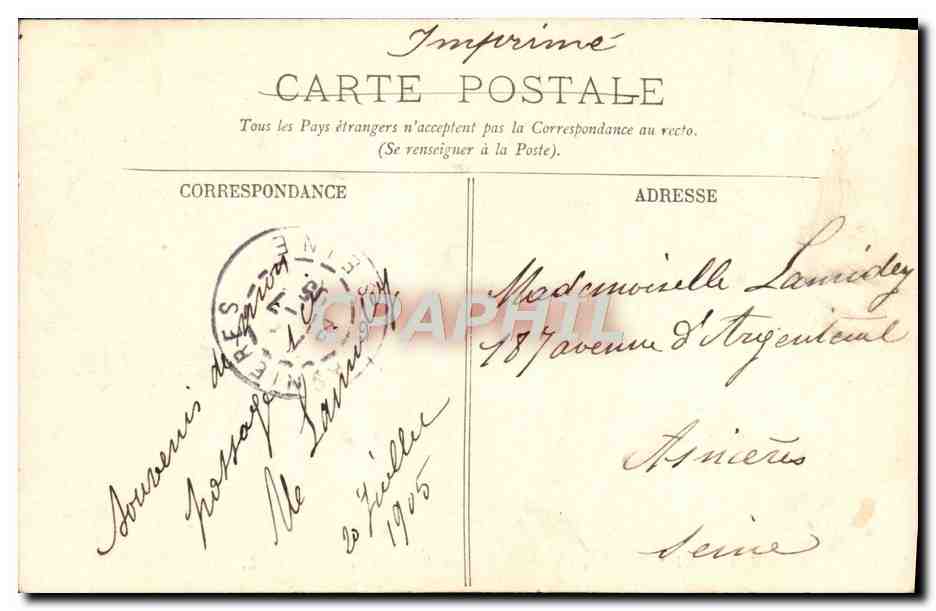 Imprimé
CARTE POSTALE
Tous les Pays étrangers n'acceptent pas la Correspondance au recto.
(Se renseigner à la Poste).
CORRESPONDANCE
Souvenir de mon
passage ici
Lamidey
20 Juillet
1905
ADRESSE
Mademoiselle Lamidey
187 avenue d'Argenteuil
Asnières
Seine
NIERES
SEINE
CPAPHIL